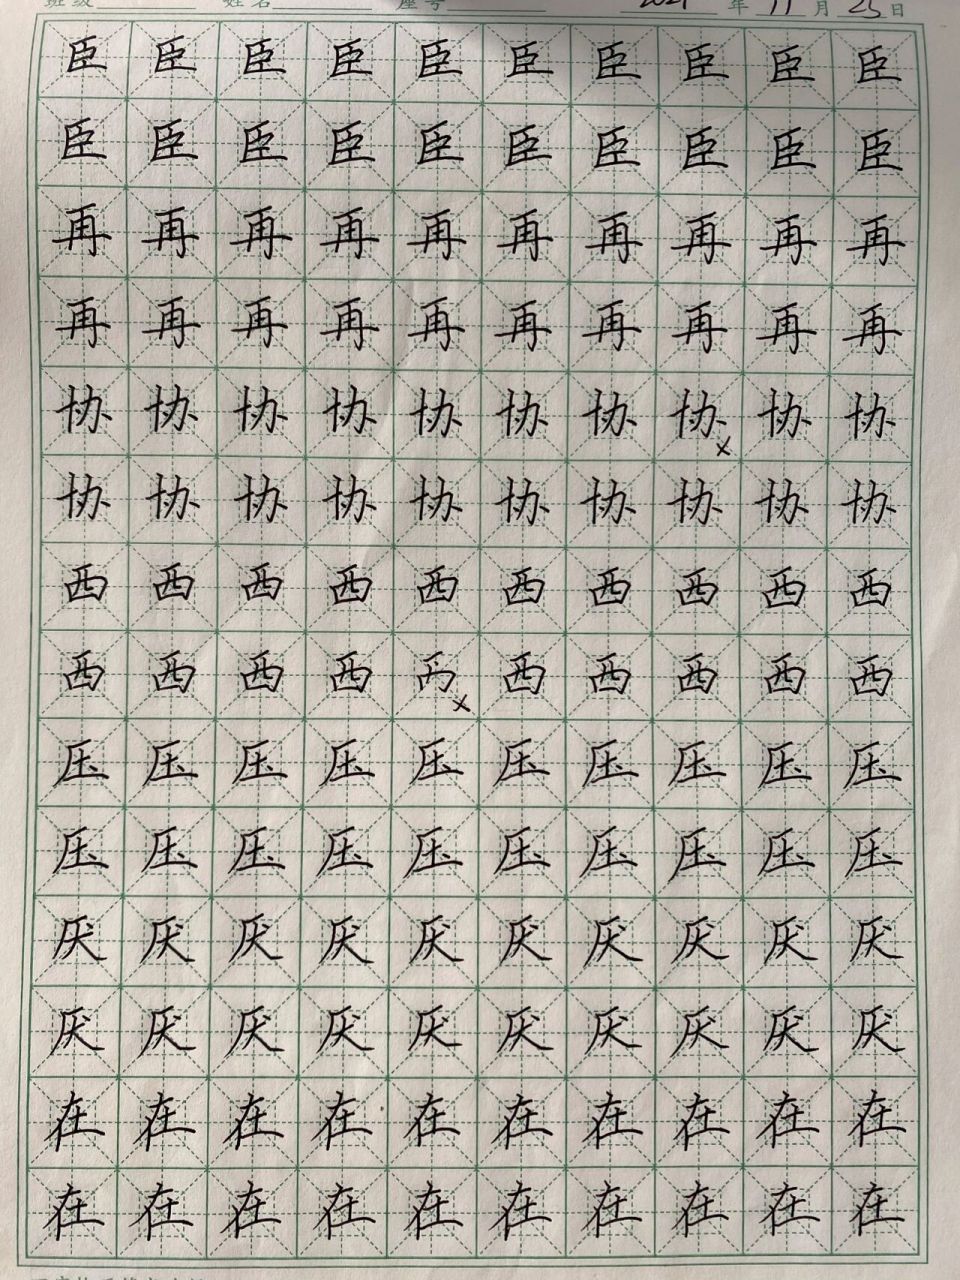 班级 姓名 座号 2021年11月25日
臣臣臣臣臣臣臣臣臣臣
臣臣臣臣臣臣臣臣臣臣
再再再再再再再再再再
再再再再再再再再再再
协协协协协协协协×协协
协协协协协协协协协协
西西西西西西西西西西
西西西西×西西西西西
压压压压压压压压压压
压压压压压压压压压压
厌厌厌厌厌厌厌厌厌厌
厌厌厌厌厌厌厌厌厌厌
在在在在在在在在在在
在在在在在在在在在在